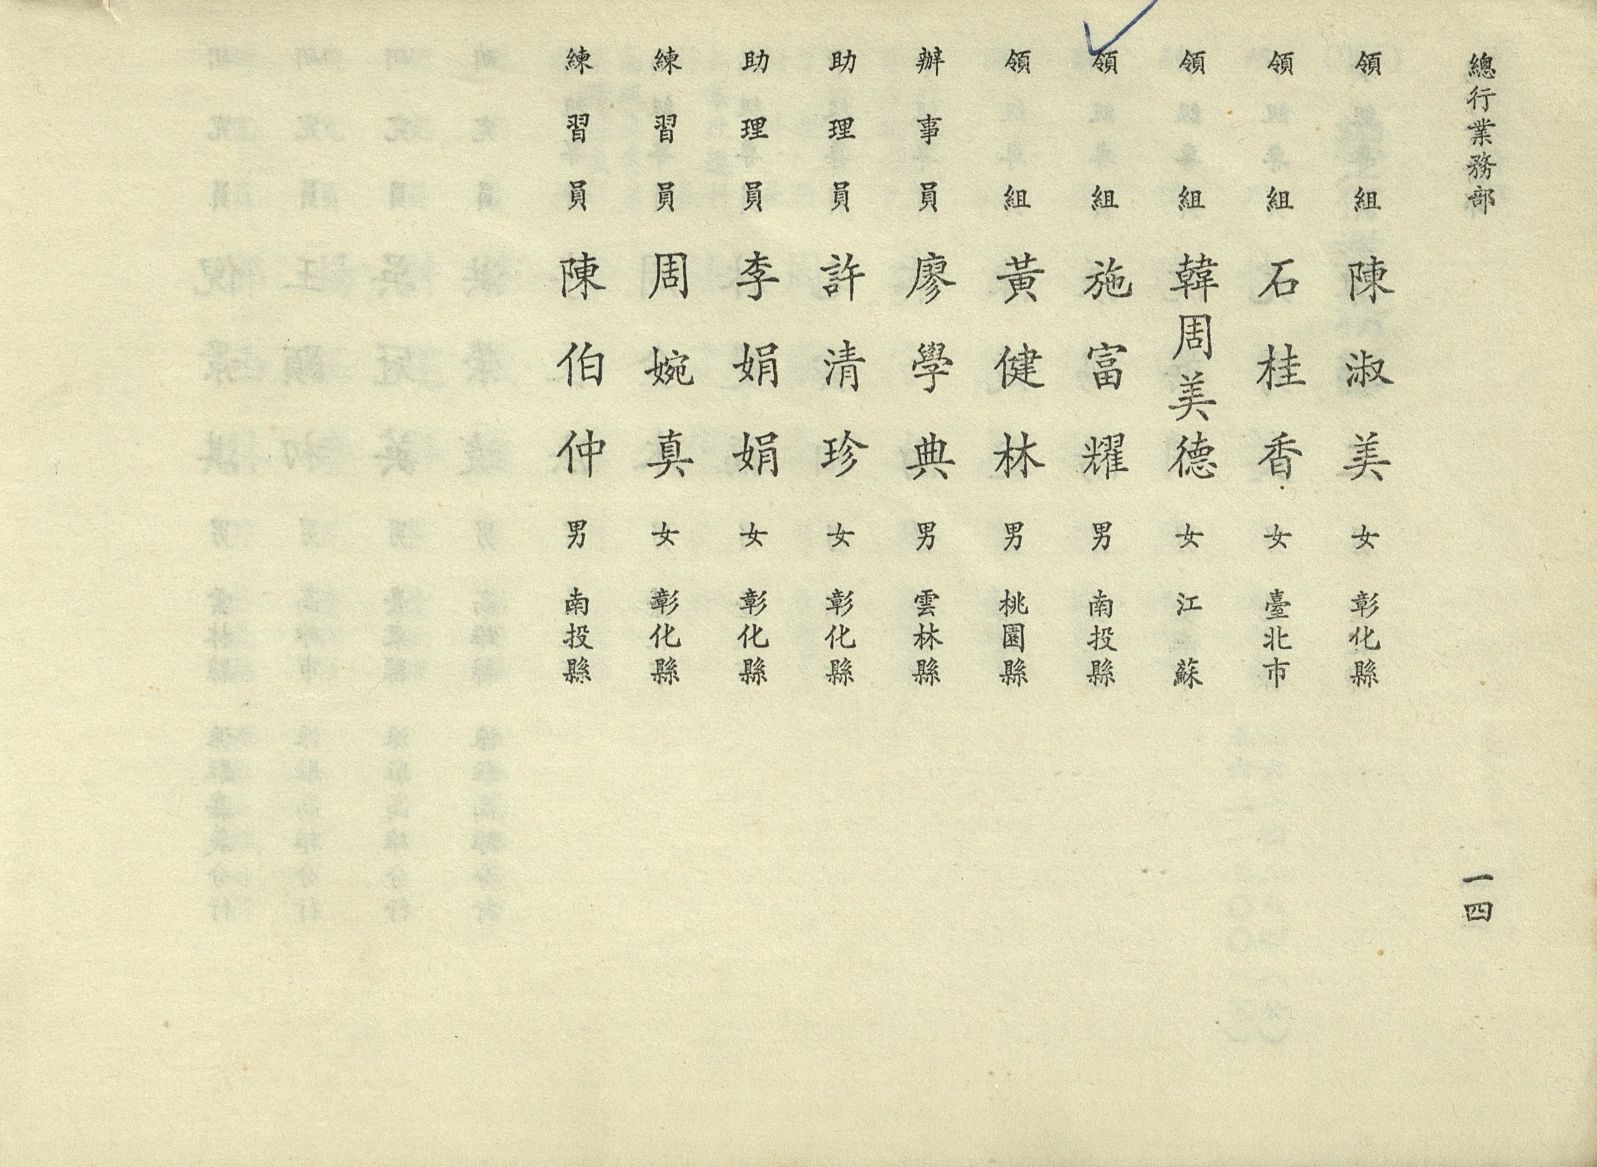 總行業務部
一四
領組 陳淑美 女 彰化縣
領組 石桂香 女 臺北市
領組 韓周美德 女 江蘇
領組 施富耀 男 南投縣
領組 黃健林 男 桃園縣
辦事員 廖學典 男 雲林縣
助理員 許清珍 女 彰化縣
助理員 李娟娟 女 彰化縣
練習員 周婉真 女 彰化縣
練習員 陳伯仲 男 南投縣